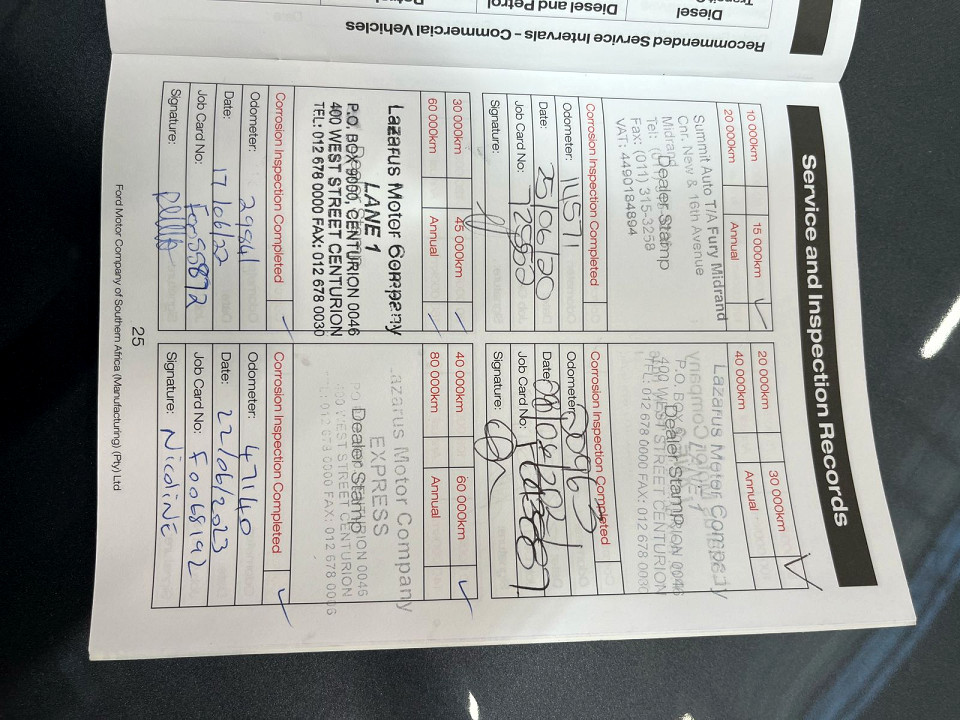 Recommended Service Intervals - Commercial Vehicles
Diesel
Diesel and Petrol
Service and Inspection Records
10 000km
15 000km
20 000km
Annual
Summit Auto T/A Fury Midrand
Cnr. New & 16th Avenue
Midrand
Dealer Stamp
Tel:
Fax: (011) 315-3258
VAT: 4490184894
Corrosion Inspection Completed
Odometer: 14571
Date: 25/06/20
Job Card No:
Signature:
20 000km
30 000km
40 000km
Annual
Lazarus Motor Company
LANE 1
P.O. BOX 9000, CENTURION 0046
Dealer Stamp
400 WEST STREET CENTURION
TEL: 012 678 0000 FAX: 012 678 0030
Corrosion Inspection Completed
Odometer:
Date:
Job Card No:
Signature:
30 000km
45 000km
60 000km
Annual
Lazarus Motor Company
LANE 1
Dealer Stamp
P.O. BOX 9000, CENTURION 0046
400 WEST STREET CENTURION
TEL: 012 678 0000 FAX: 012 678 0030
Corrosion Inspection Completed
Odometer: 29841
Date: 17/06/22
Job Card No: For55892
Signature:
40 000km
60 000km
80 000km
Annual
Lazarus Motor Company
EXPRESS
Dealer Stamp
CENTURION 0046
400 WEST STREET CENTURION
012 678 0000 FAX: 012 678 0036
Corrosion Inspection Completed
Odometer: 47140
Date: 22/06/2023
Job Card No: F0068192
Signature: NicoliNE
25
Ford Motor Company of Southern Africa (Manufacturing) (Pty) Ltd